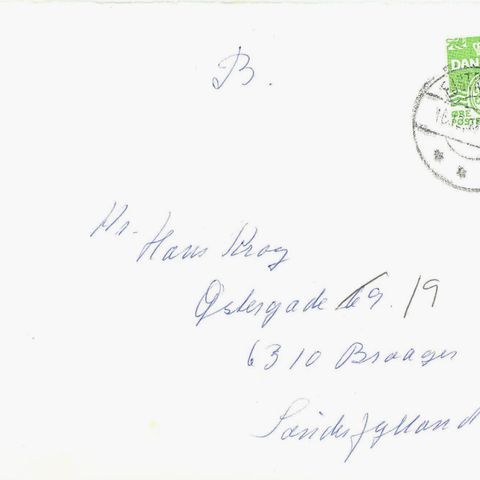 B.
DAN
ØRE
POSTE
Hr.
Hans Krog
Østergade 69. 19
6310 Broager
Sønderjylland